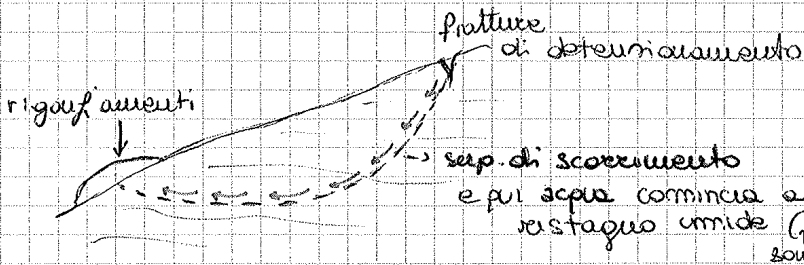 fratture
di detensionamento
rigonfiamenti
sup. di scorrimento
e qui acqua comincia a
ristagno umide (